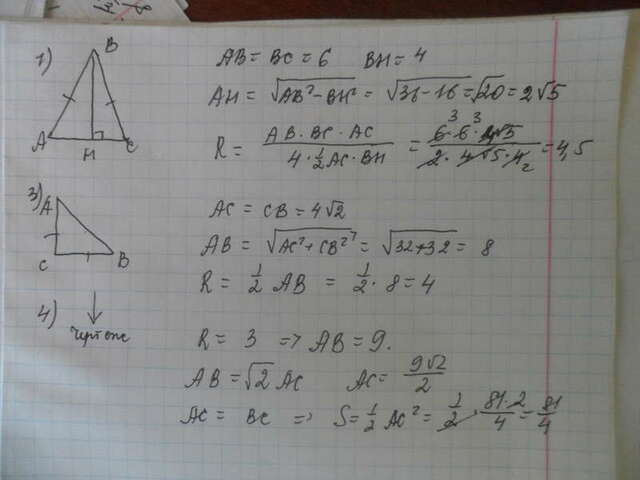 1)
B
A H C
AB = BC = 6 BH = 4
AH = √(AB² - BH²) = √(36 - 16) = √20 = 2√5
R = (AB · BC · AC) / (4 · 1/2 AC · BH) = (6 · 6 · 4√5) / (2 · 4√5 · 4) = 4,5
3 3 2
3)
A
C B
AC = CB = 4√2
AB = √(AC² + CB²) = √(32 + 32) = 8
R = 1/2 AB = 1/2 · 8 = 4
4)
↓
Чертеж
R = 3 => AB = 9.
AB = √2 AC AC = 9√2/2
AC = BC => S = 1/2 AC² = 1/2 · (81 · 2)/4 = 81/4